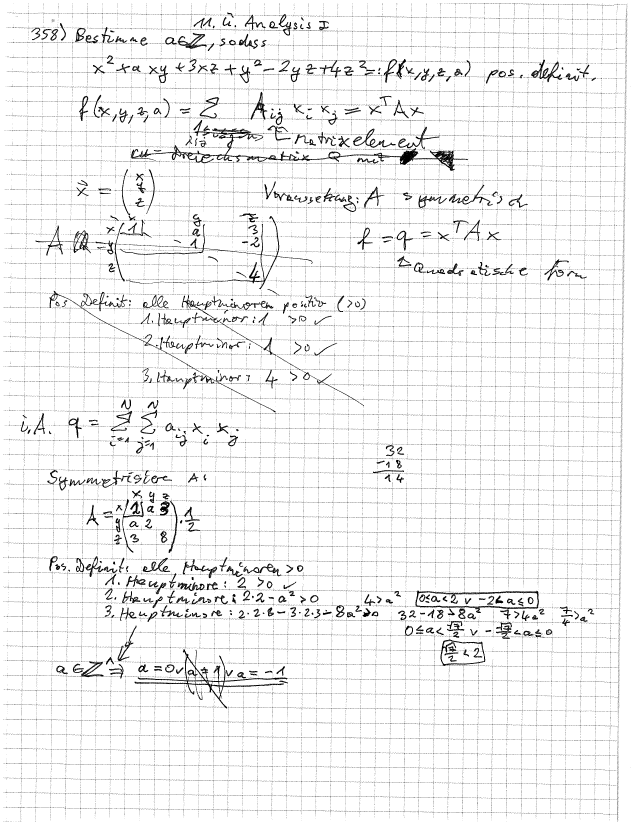 11. Ü. Analysis I
358) Bestimme a∈ℤ, sodass
x² + a xy + 3xz + y² - 2yz + 4z² =: f(x,y,z,a) pos. definit.
f(x,y,z,a) = Σ A_ij x_i x_j = xᵀAx
↑ Matrixelement
Dreiecksmatrix Q mit
x⃗ = (x y z)
Voraussetzung: A symmetrisch
x y z
A = x 1 a 3
y - 1 -2
z - - 4
f = q = xᵀAx
↑ Quadratische Form
Pos. Definit: alle Hauptminoren positiv (>0)
1. Hauptminor: 1 >0 ✓
2. Hauptminor: 1 >0 ✓
3. Hauptminor: 4 >0 ✓
i.A. q = Σ_{i=1}^N Σ_{j=1}^N a_ij x_i x_j
32
-18
14
Symmetrisiere A:
x y z
A = x 1 a 3
y a 2
z 3 8
· 1/2
Pos. Definit: alle Hauptminoren >0
1. Hauptminore: 2 >0 ✓
2. Hauptminore: 2·2 - a² >0 4 > a² 0≤a<2 ∨ -2<a≤0
3. Hauptminore: 2·2·8 - 3·2·3 - 8a² >0 32-18 > 8a² 7 > 4a² 7/4 > a²
0≤a<√7/2 ∨ -√7/2<a≤0
√7/2 < 2
a∈ℤ ⇒ a = 0 ∨ a = 1 ∨ a = -1